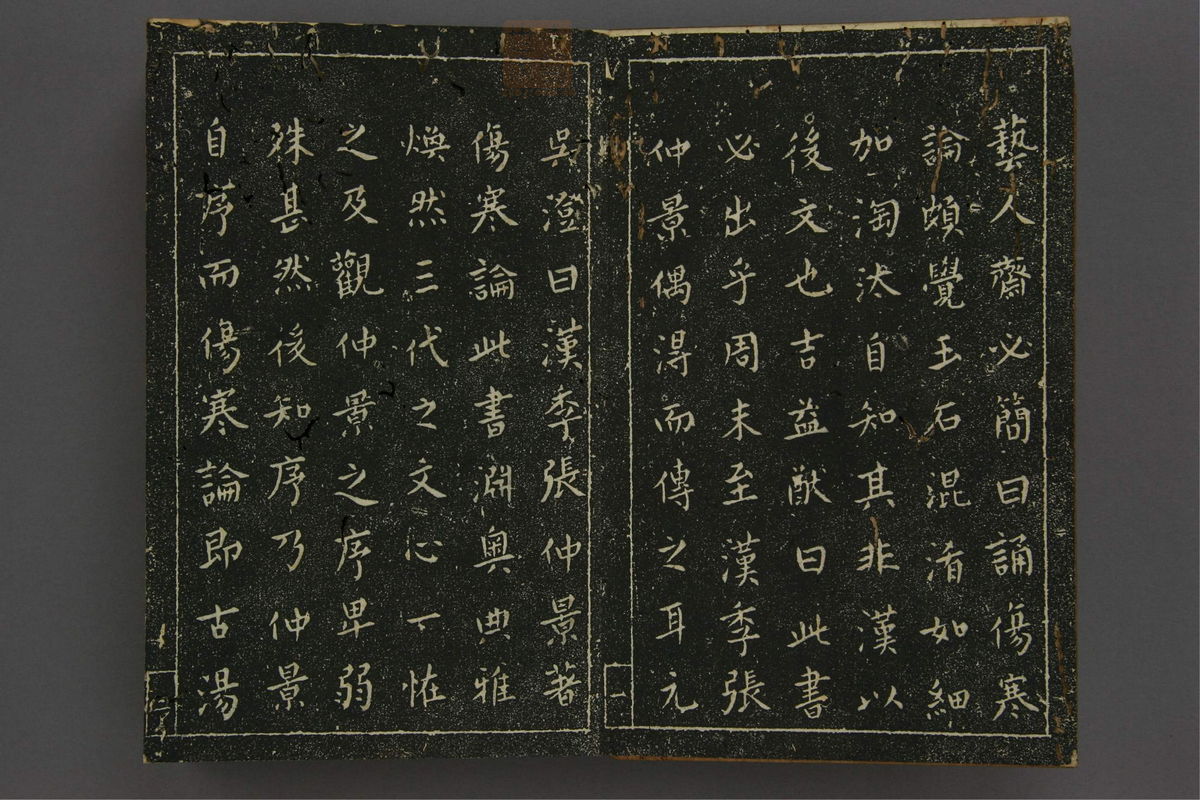 藝人齋必簡曰誦傷寒
論頗覺玉石混淆如細
加淘汰自知其非漢以
後文也吉益猷曰此書
必出乎周末至漢季張
仲景偶得而傳之耳元
吳澄曰漢季張仲景著
傷寒論此書淵奧典雅
煥然三代之文心一恠
之及觀仲景之序卑弱
殊甚然後知序乃仲景
自序而傷寒論即古湯
一
二